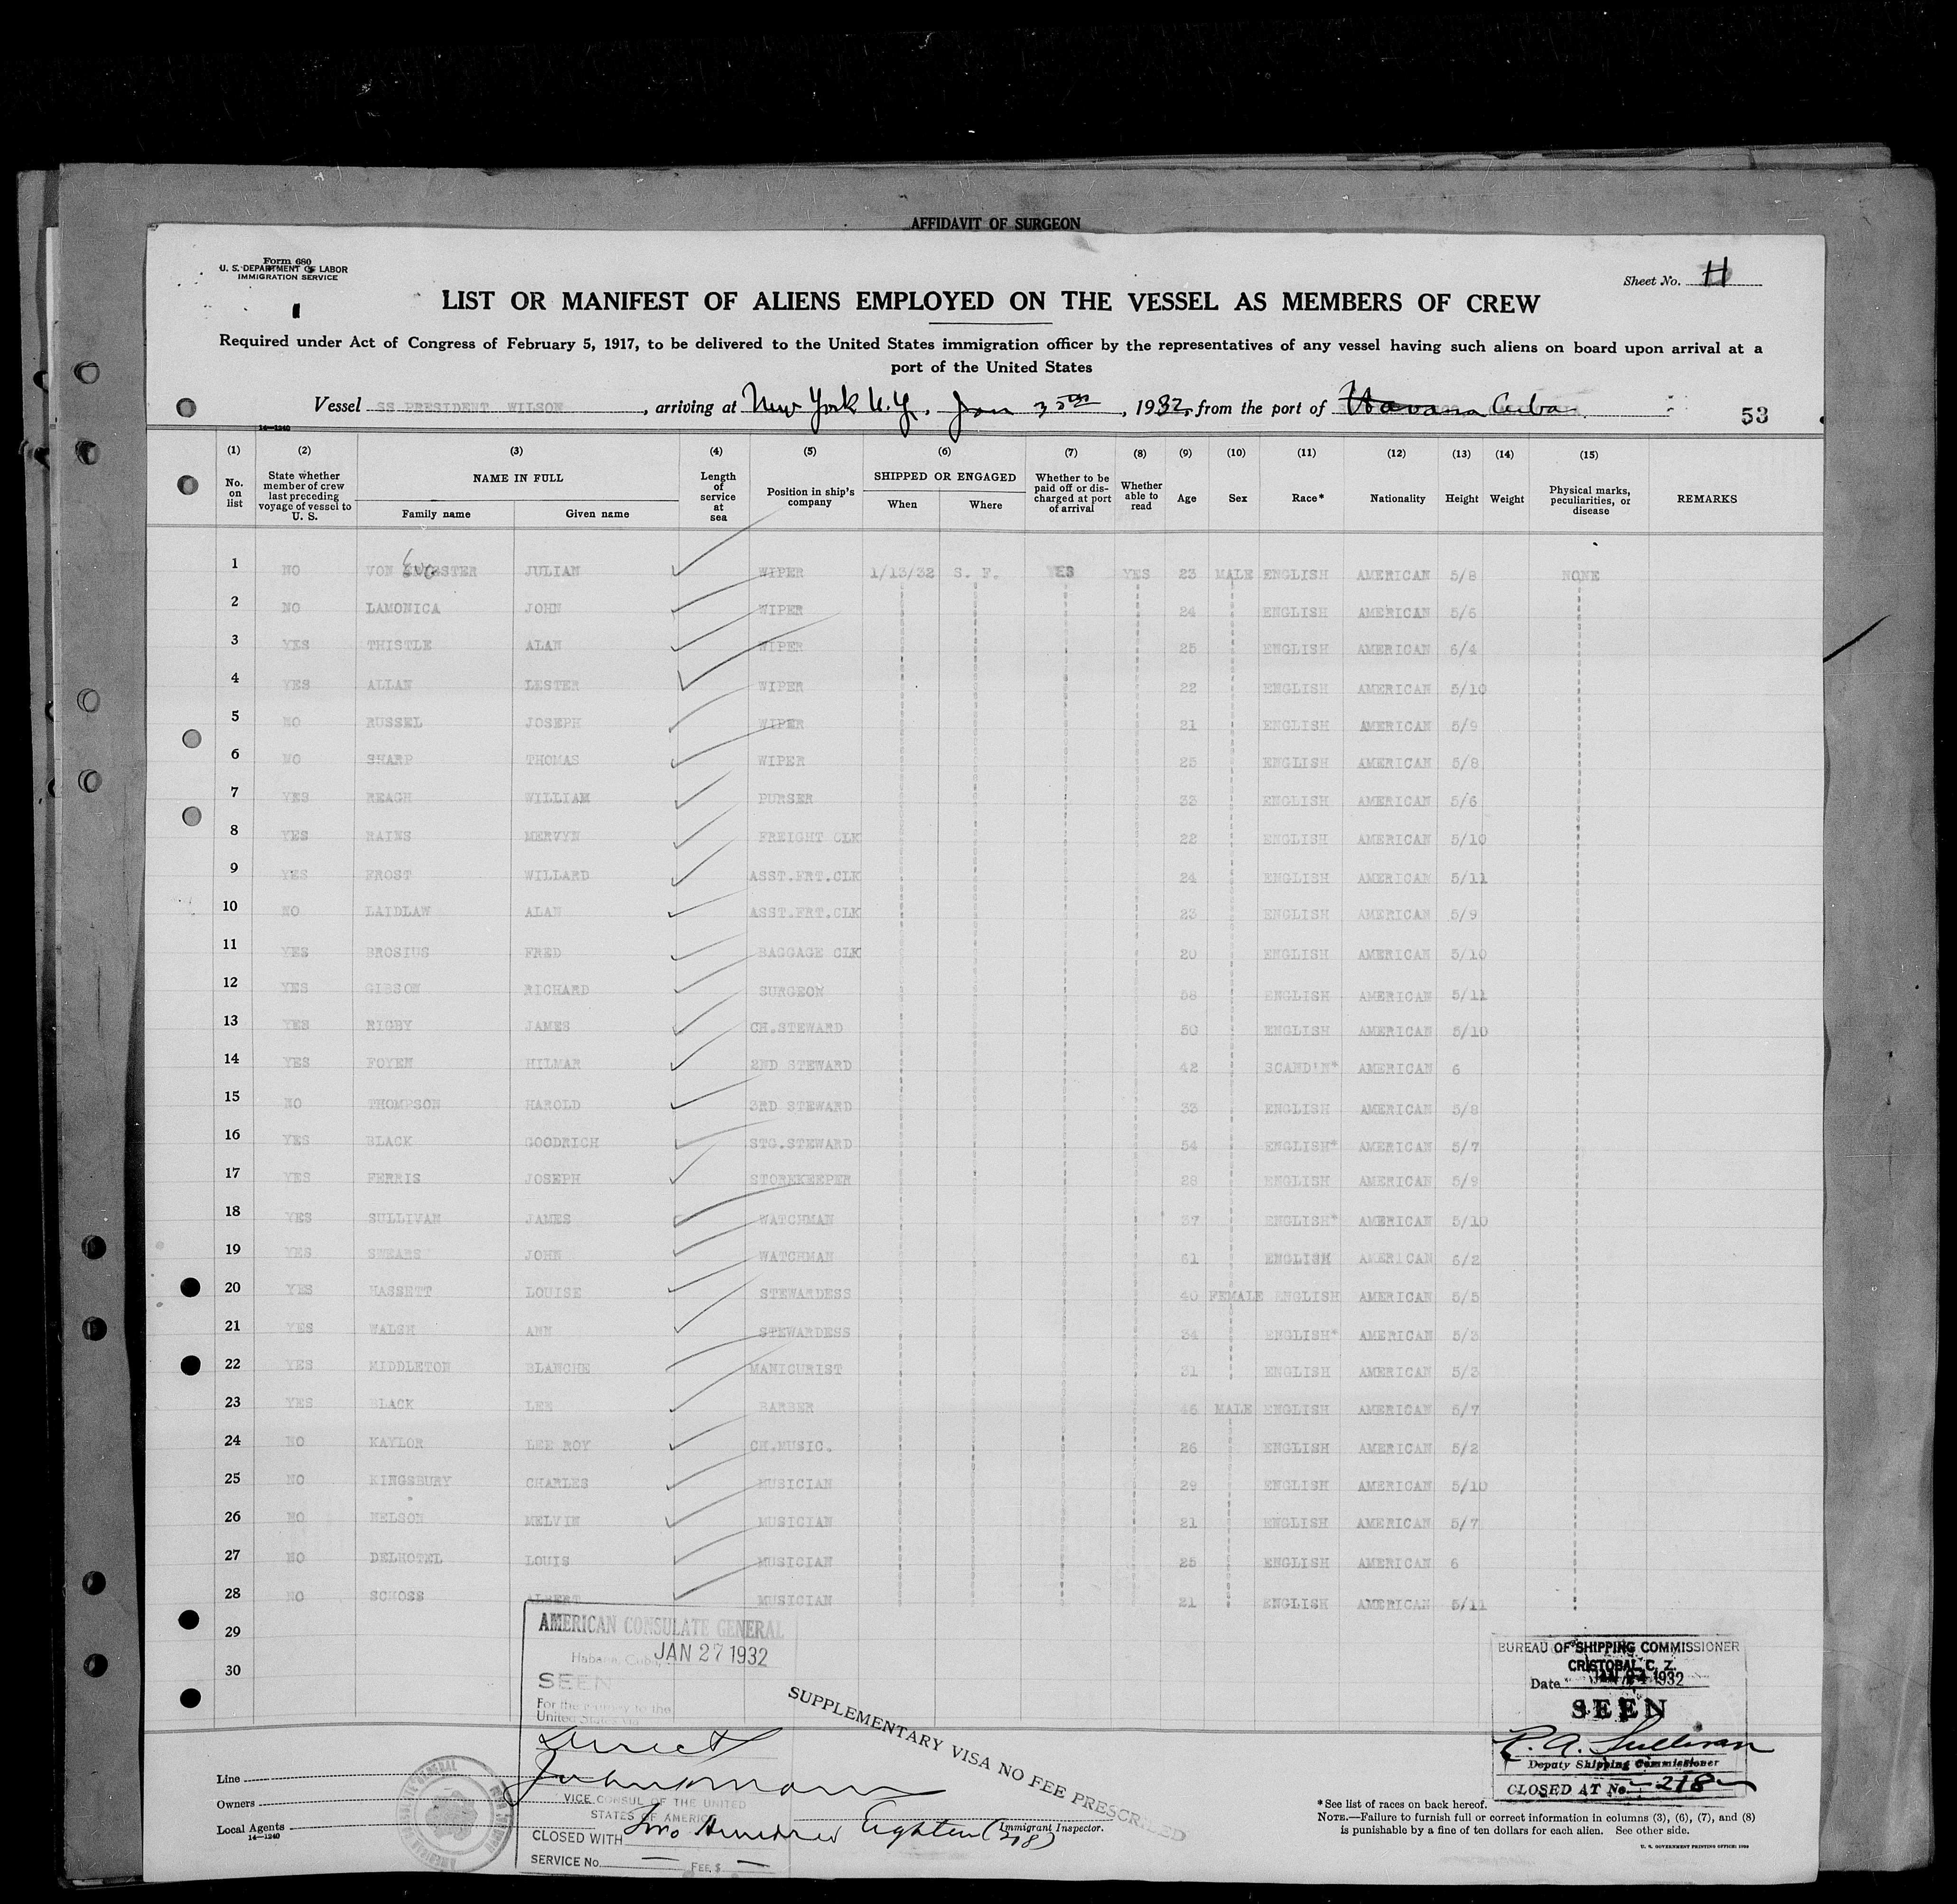 AFFIDAVIT OF SURGEON
Form 680
U. S. DEPARTMENT OF LABOR
IMMIGRATION SERVICE
Sheet No. H
LIST OR MANIFEST OF ALIENS EMPLOYED ON THE VESSEL AS MEMBERS OF CREW
Required under Act of Congress of February 5, 1917, to be delivered to the United States immigration officer by the representatives of any vessel having such aliens on board upon arrival at a
port of the United States
Vessel SS PRESIDENT WILSON, arriving at New York N.Y. Jan , 1932, from the port of Havana Cuba
53
14—1240
(1) (2) (3) (4) (5) (6) (7) (8) (9) (10) (11) (12) (13) (14) (15)
No. on list State whether member of crew last preceding voyage of vessel to U. S. NAME IN FULL Family name Given name Length of service at sea Position in ship's company SHIPPED OR ENGAGED When Where Whether to be paid off or discharged at port of arrival Whether able to read Age Sex Race* Nationality Height Weight Physical marks, peculiarities, or disease REMARKS
1 NO VON STER JULIAN WIPER 1/13/32 S. F. YES YES 23 MALE ENGLISH AMERICAN 5/8 NONE
2 NO LAMONICA JOHN WIPER 24 ENGLISH AMERICAN 5/6
3 YES THISTLE ALAN WIPER 25 ENGLISH AMERICAN 6/4
4 YES ALLAN LESTER WIPER 22 ENGLISH AMERICAN 5/10
5 NO RUSSEL JOSEPH WIPER 21 ENGLISH AMERICAN 5/9
6 NO SHARP THOMAS WIPER 25 ENGLISH AMERICAN 5/8
7 YES REAGH WILLIAM PURSER 33 ENGLISH AMERICAN 5/6
8 YES RAINS MERVYN FREIGHT CLK 22 ENGLISH AMERICAN 5/10
9 YES FROST WILLARD ASST.FRT.CLK 24 ENGLISH AMERICAN 5/11
10 NO LAIDLAW ALAN ASST.FRT.CLK 23 ENGLISH AMERICAN 5/9
11 YES BROSIUS FRED BAGGAGE CLK 20 ENGLISH AMERICAN 5/10
12 YES GIBSON RICHARD SURGEON 58 ENGLISH AMERICAN 5/11
13 YES RIGBY JAMES CH.STEWARD 50 ENGLISH AMERICAN 5/10
14 YES FOYEN HILMAR 2ND STEWARD 42 SCAND'N* AMERICAN 6
15 NO THOMPSON HAROLD 3RD STEWARD 33 ENGLISH AMERICAN 5/8
16 YES BLACK GOODRICH STG.STEWARD 54 ENGLISH* AMERICAN 5/7
17 YES FERRIS JOSEPH STOREKEEPER 28 ENGLISH AMERICAN 5/9
18 YES SULLIVAN JAMES WATCHMAN 37 ENGLISH* AMERICAN 5/10
19 YES SWEARS JOHN WATCHMAN 61 ENGLISH AMERICAN 6/2
20 YES HASSETT LOUISE STEWARDESS 40 FEMALE ENGLISH AMERICAN 5/5
21 YES WALSH ANN STEWARDESS 34 ENGLISH* AMERICAN 5/3
22 YES MIDDLETON BLANCHE MANICURIST 31 ENGLISH AMERICAN 5/3
23 YES BLACK LEE BARBER 46 MALE ENGLISH AMERICAN 5/7
24 NO KAYLOR LEE ROY CH.MUSIC. 26 ENGLISH AMERICAN 5/2
25 NO KINGSBURY CHARLES MUSICIAN 29 ENGLISH AMERICAN 5/10
26 NO NELSON MELVIN MUSICIAN 21 ENGLISH AMERICAN 5/7
27 NO DELHOTEL LOUIS MUSICIAN 25 ENGLISH AMERICAN 6
28 NO SCHOSS ALBERT MUSICIAN 21 ENGLISH AMERICAN 5/11
29
30
AMERICAN CONSULATE GENERAL
Habana, Cuba, JAN 27 1932
SEEN
For the journey to the
United States via
Direct
VICE CONSUL OF THE UNITED
STATES OF AMERICA
CLOSED WITH Two Hundred Eighteen (218)
SERVICE No. — FEE $ —
SUPPLEMENTARY VISA NO FEE PRESCRIBED
BUREAU OF SHIPPING COMMISSIONER
CRISTOBAL, C. Z.
Date JAN 24 1932
SEEN
R. A. Sullivan
Deputy Shipping Commissioner
CLOSED AT No. 218
Line
Owners
Local Agents
14—1240
Immigrant Inspector.
*See list of races on back hereof.
NOTE.—Failure to furnish full or correct information in columns (3), (6), (7), and (8)
is punishable by a fine of ten dollars for each alien. See other side.
U. S. GOVERNMENT PRINTING OFFICE